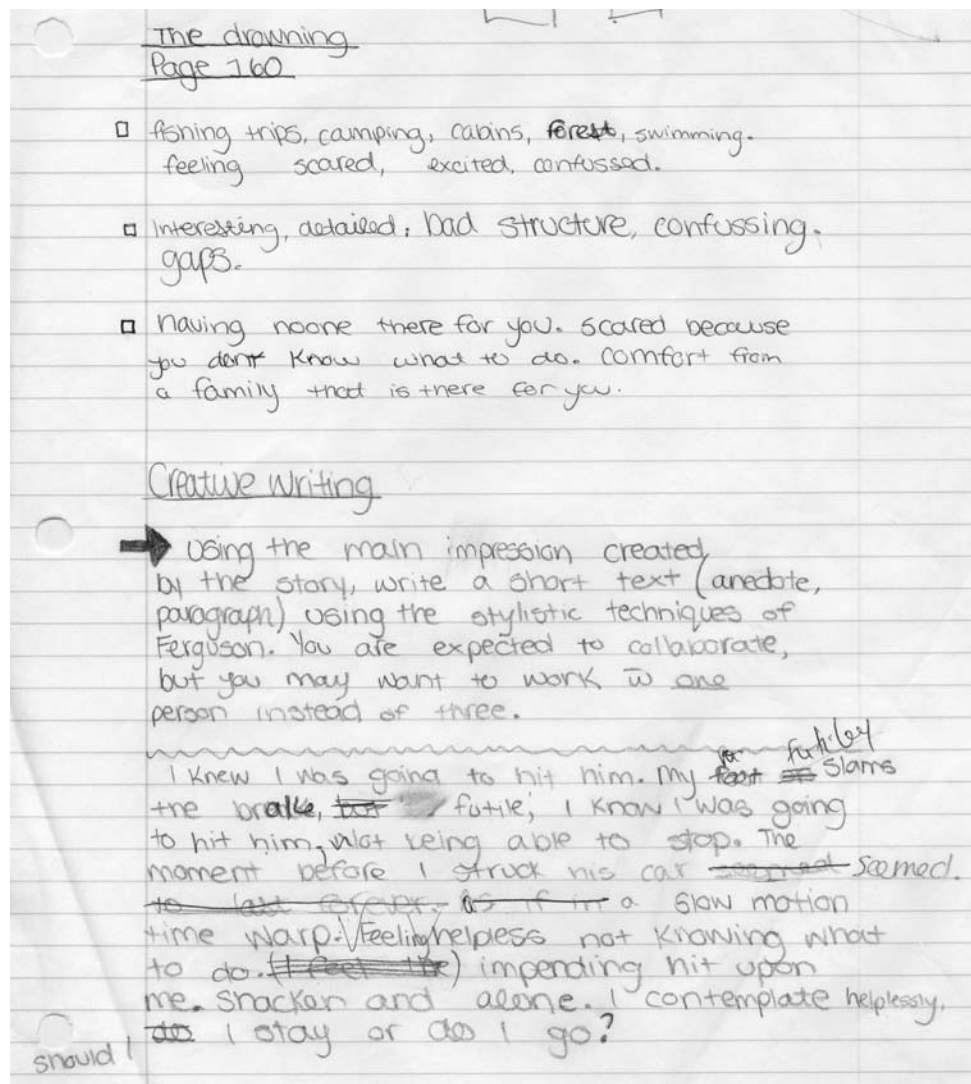 The drowning
Page 160
fishing trips, camping, cabins, forest, swimming.
feeling scared, excited, confussed.
Interesting, detailed, bad structure, confussing.
gaps.
having noone there for you. scared because
you dont know what to do. comfort from
a family that is there for you.
Creative Writing
Using the main impression created
by the story, write a short text (anecdote,
paragraph) using the stylistic techniques of
Ferguson. You are expected to collaborate,
but you may want to work w one
person instead of three.
futiley
I knew I was going to hit him. My foot Slams
the brake, but futile, I know I was going
to hit him, not being able to stop. The
moment before I struck his car seemed seemed.
to last forever. as if in a slow motion
time warp. Feeling helpless not knowing what
to do. (I feel the) impending hit upon
me. Shacken and alone. I contemplate helplessly.
do I stay or do I go?
should I